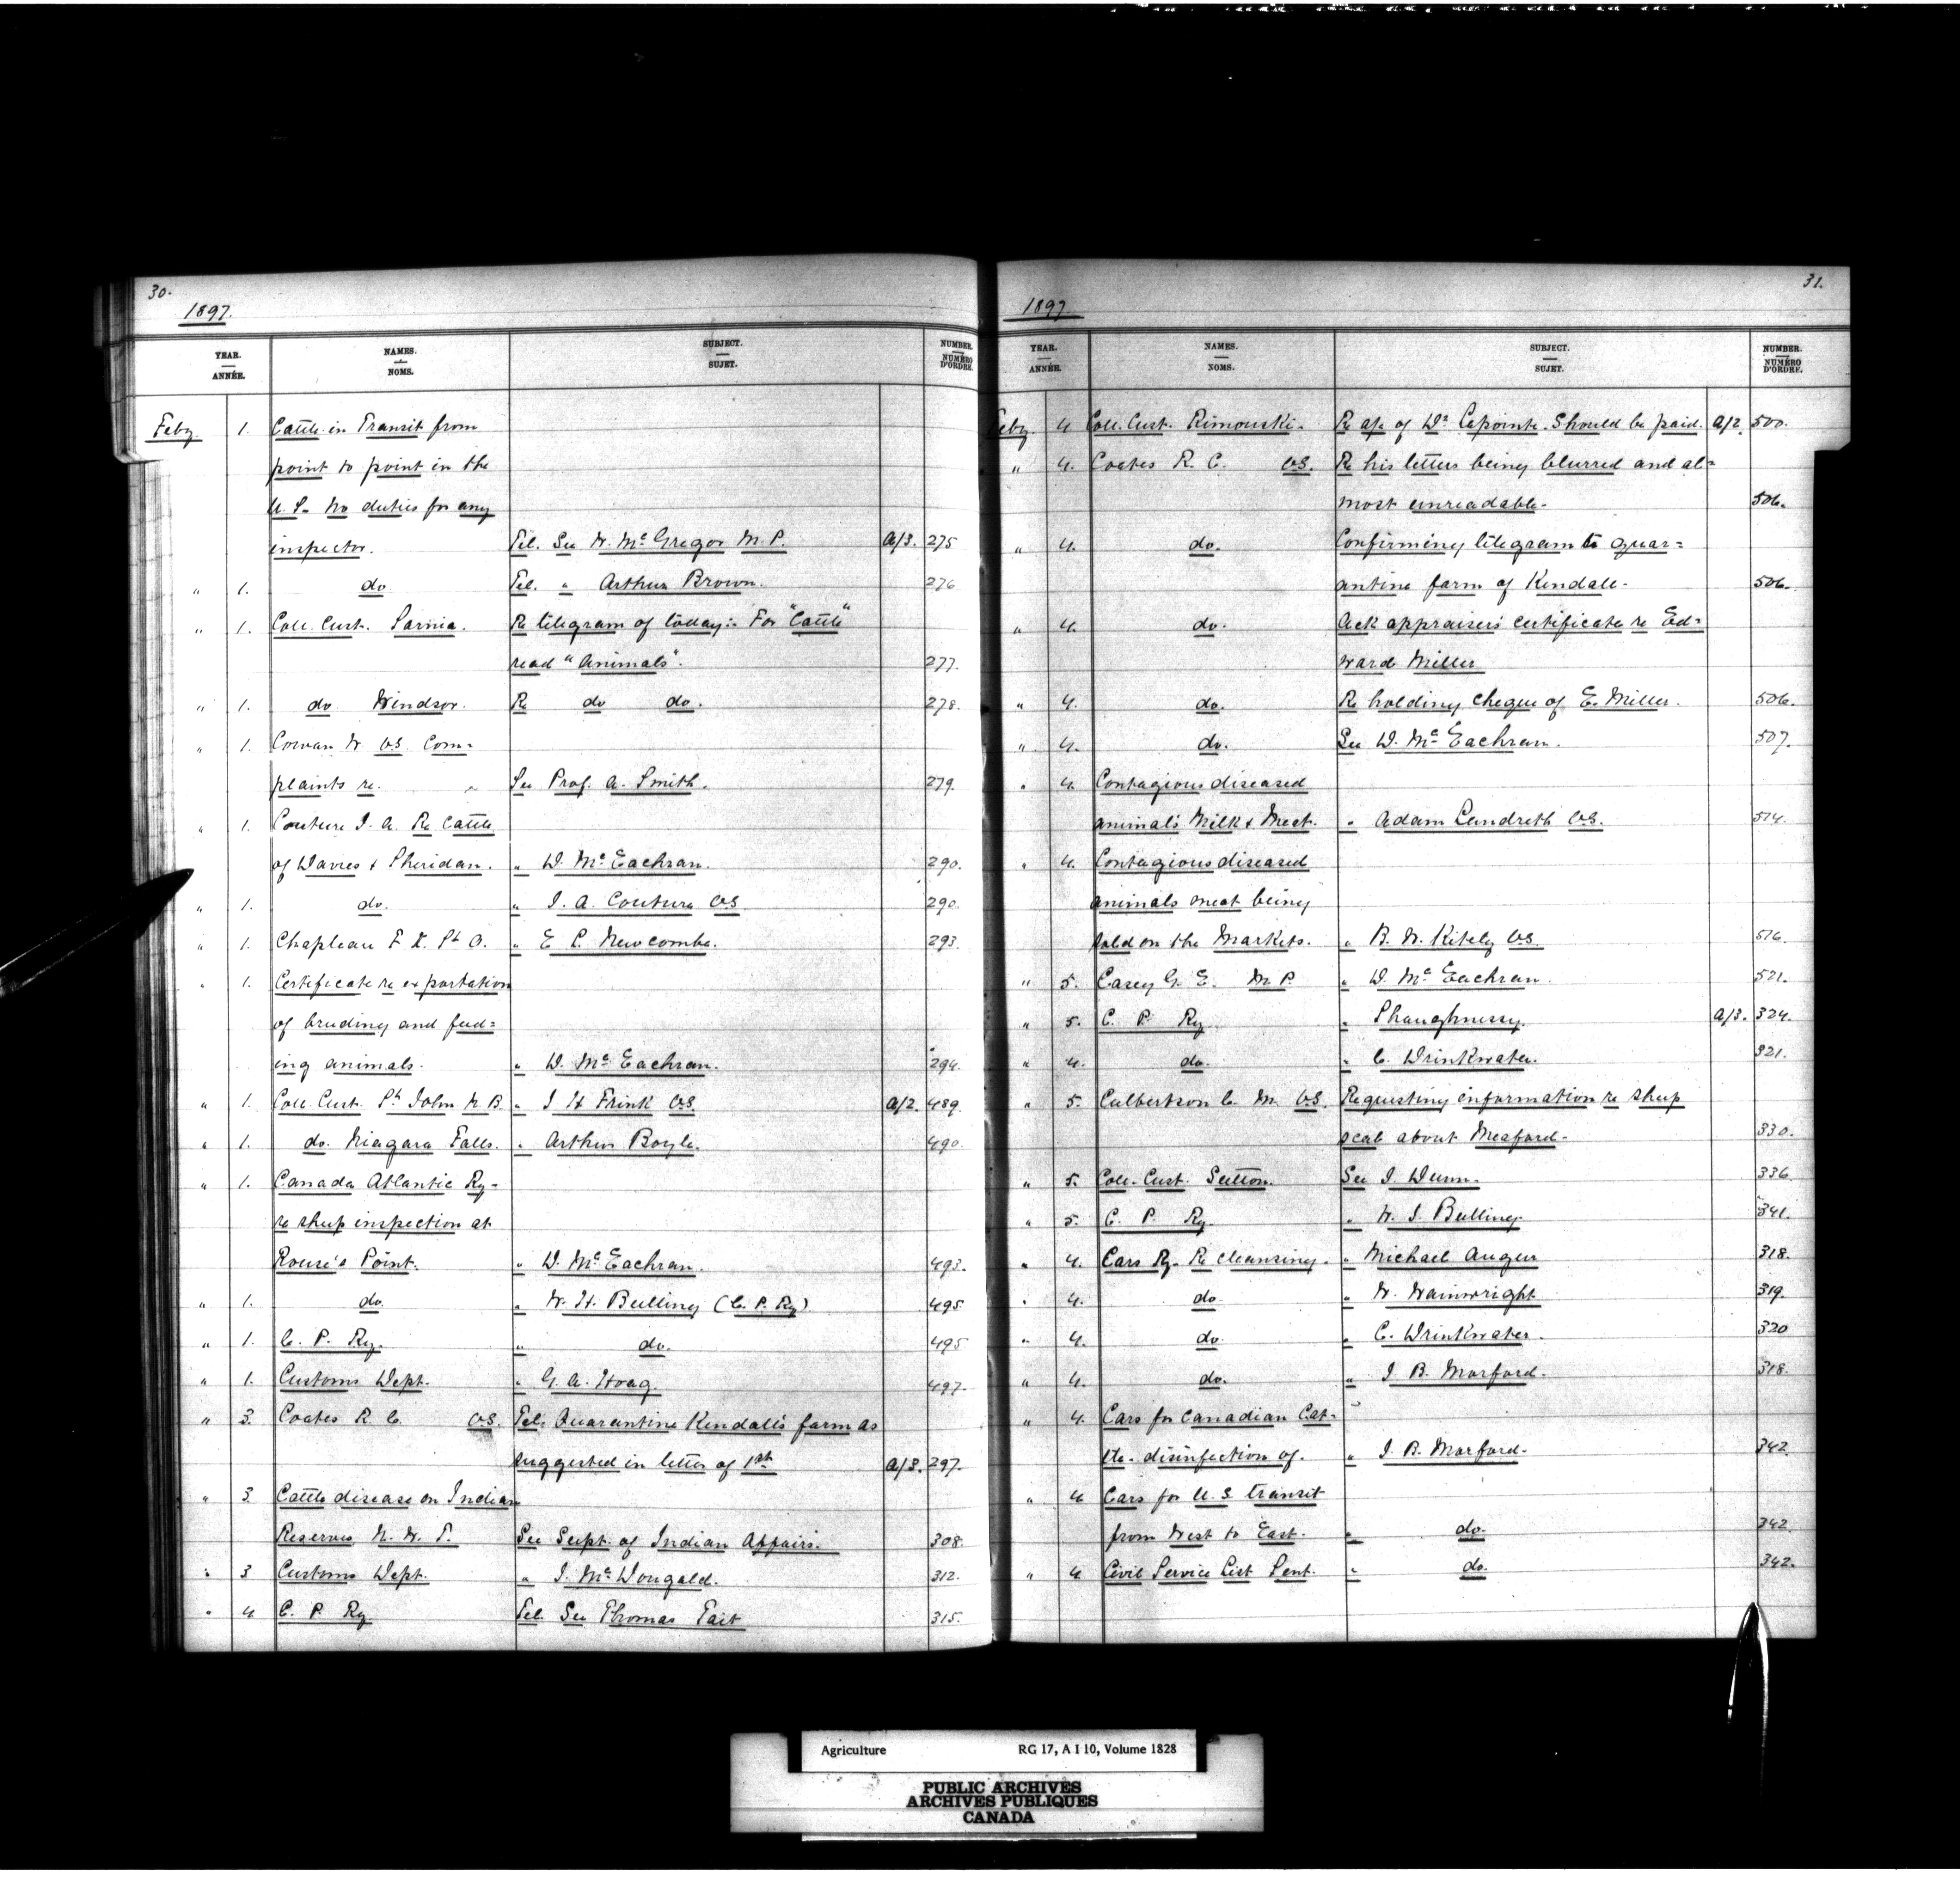 30.
1897.
YEAR. ANNÉE. NAMES. NOMS. SUBJECT. SUJET. NUMBER. NUMÉRO D'ORDRE.
Feby. 1. Cattle in Transit from
point to point in the
U. S. No duties for any
inspector. Tel. See W. McGregor M. P. A/3. 275
" 1. do Tel. " Arthur Brown. 276
" 1. Coll. Cust. Sarnia. Re telegram of today:- For "Cattle"
read "Animals". 277.
" 1. do Windsor. Re do do. 278.
" 1. Cowan W VS. Com=
plaints re. See Prof. A. Smith. 279.
" 1. Couture J. A. Re Cattle
of Davies & Sheridan. " D. McEachran. 290.
" 1. do. " J. A. Couture VS 290.
" 1. Chapleau F. X. St O. " E. L. Newcombe. 293.
" 1. Certificate re exportation
of breeding and feed=
ing animals. " D. McEachran. 294.
" 1. Coll. Cust. St John N. B. " J H Frink VS A/2. 489.
" 1. do. Niagara Falls. " Arthur Boyle. 490.
" 1. Canada Atlantic Ry-
re sheep inspection at
Rouse's Point. " D. McEachran. 493.
" 1. do. " W. H. Bulling (C. P. Ry) 495.
" 1. C. P. Ry. " do. 495
" 1. Customs Dept. " G. A. Hoag 497.
" 3. Coates R. C. VS. Tel: Quarantine Kendall's farm as
suggested in letter of 1st A/3. 297.
" 3. Cattle disease on Indian
Reserves N. W. T. See Supt. of Indian Affairs. 308.
" 3 Customs Dept. " J. McDougald. 312.
" 4 C. P. Ry Tel. See Thomas Tait 315.
31.
1897
YEAR. ANNÉE. NAMES. NOMS. SUBJECT. SUJET. NUMBER. NUMÉRO D'ORDRE.
Feby. 4. Coll. Cust. Rimouski- Re a/c of Dr Lapointe. Should be paid. A/2. 500.
" 4. Coates R. C. VS. Re his letters being blurred and al=
most unreadable- 506.
" 4. do. Confirming telegram to quar=
antine farm of Kendall- 506.
" 4. do. Ack appraisers certificate re Ed=
ward Miller
" 4. do. Re holding cheque of E. Miller. 506.
" 4. do. See D. McEachran. 507.
" 4. Contagious diseased
animals Milk & Meat. " Adam Landreth VS. 514.
" 4. Contagious diseased
animals meat being
sold on the Markets. " B. W. Kitely VS. 516.
" 5. Casey G. E. M P. " D. McEachran. 521.
" 5. C. P. Ry. " Shaughnessy. A/3. 324.
" 4. do. " C. Drinkwater. 321.
" 5. Culbertson C. M. VS. Requesting information re sheep
scab about Meaford- 330.
" 5. Coll. Cust. Sutton. See J. Dunn. 336
" 5. C. P. Ry. " W. J. Bulling. 341.
" 4. Cars Ry- Re cleansing. " Michael Auger 318.
" 4. do " W. Wainwright 319.
" 4. do. " C. Drinkwater. 320
" 4. do. " J. B. Morford. 318.
" 4. Cars for Canadian Cat-
tle- disinfection of. " J. B. Morford. 342.
" 4 Cars for U. S. transit
from West to East. " do. 342.
" 4 Civil Service List Sent. " do. 342.
Agriculture RG 17, A I 10, Volume 1828
PUBLIC ARCHIVES
ARCHIVES PUBLIQUES
CANADA